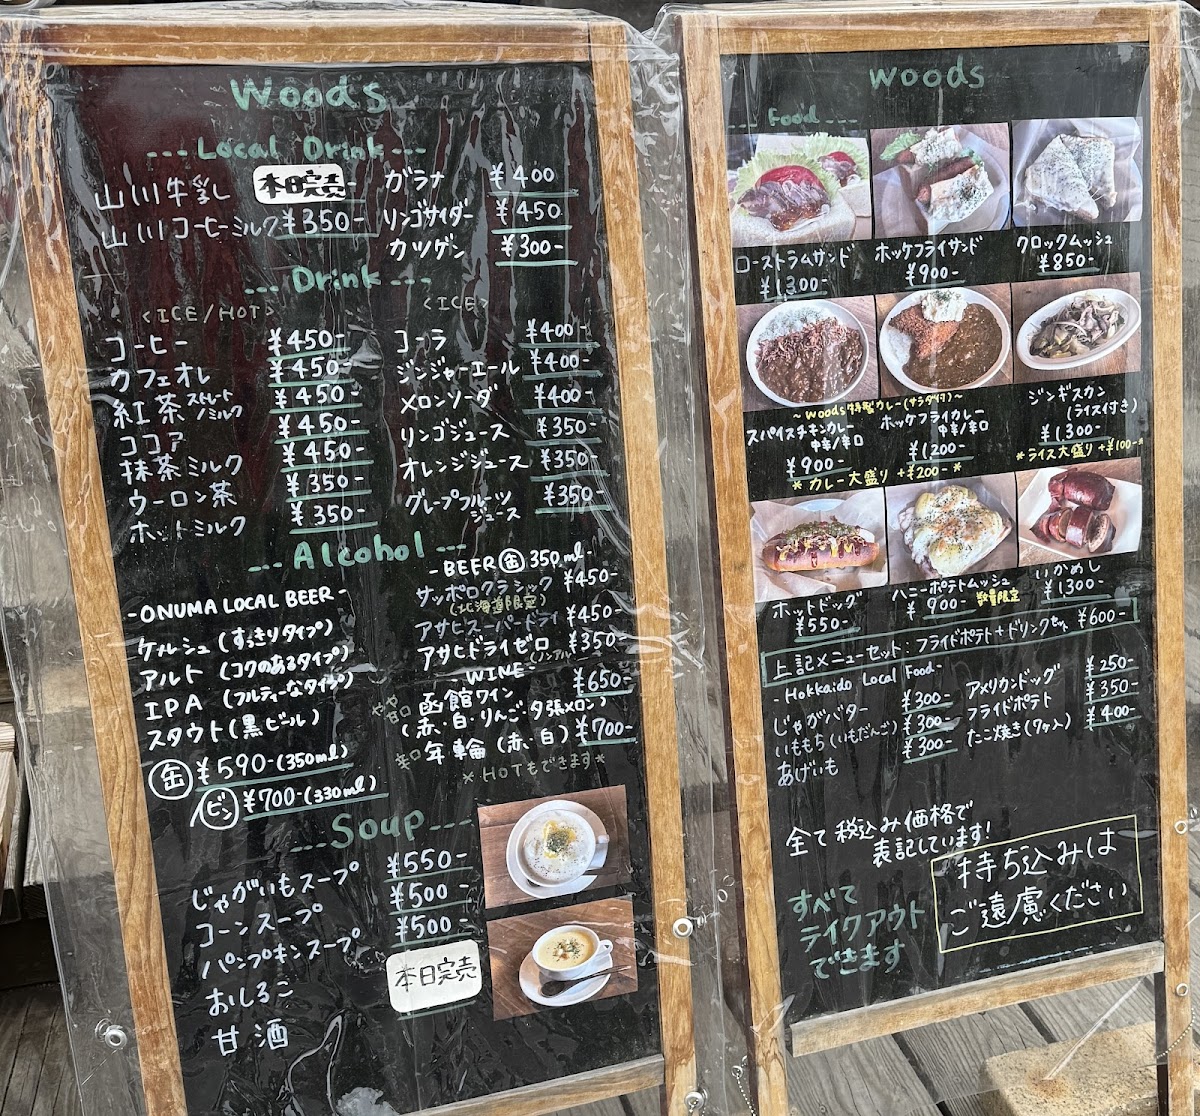 Woods
--- Local Drink ---
山川牛乳 本日完売
山川コーヒーミルク ¥350-
ガラナ ¥400
リンゴサイダー ¥450
カツゲン ¥300-
--- Drink ---
<ICE/HOT>
コーヒー ¥450-
カフェオレ ¥450-
紅茶 ストレート/ミルク ¥450-
ココア ¥450-
抹茶ミルク ¥450-
ウーロン茶 ¥350-
ホットミルク ¥350-
<ICE>
コーラ ¥400-
ジンジャーエール ¥400-
メロンソーダ ¥400-
リンゴジュース ¥350-
オレンジジュース ¥350-
グレープフルーツジュース ¥350-
--- Alcohol ---
-ONUMA LOCAL BEER-
ケルシュ(すっきりタイプ)
アルト(コクのあるタイプ)
IPA(フルティーなタイプ)
スタウト(黒ビール)
缶 ¥590-(350ml)
ビン ¥700-(330ml)
-BEER 缶 350ml-
サッポロクラシック ¥450-
(北海道限定)
アサヒスーパードライ ¥450-
アサヒドライゼロ(ノンアル) ¥350-
-WINE-
やや甘口 函館ワイン ¥650-
(赤・白・りんご・夕張メロン)
辛口 年輪(赤・白) ¥700-
*HOTもできます*
--- Soup ---
じゃがいもスープ ¥550-
コーンスープ ¥500-
パンプキンスープ ¥500-
おしるこ 本日完売
甘酒
woods
--- Food ---
ローストラムサンド ¥1,300-
ホッケフライサンド ¥900-
クロックムッシュ ¥850-
~woods特製カレー(サラダ付)~
スパイスチキンカレー 中辛/辛口 ¥900-
ホッケフライカレー 中辛/辛口 ¥1,200-
*カレー大盛り+¥200-*
ジンギスカン
(ライス付き)
¥1,300-
*ライス大盛り+¥100-*
ホットドッグ ¥550-
ハニーポテトムッシュ ¥900- 数量限定
いかめし ¥1,300-
上記メニューセット:フライドポテト+ドリンクセット ¥600-
-Hokkaido Local Food-
じゃがバター ¥300-
いももち(いもだんご) ¥300-
あげいも ¥300-
アメリカンドッグ ¥250-
フライドポテト ¥350-
たこ焼き(7ヶ入) ¥400-
全て税込み価格で
表記しています!
すべて
テイクアウト
できます
持ち込みは
ご遠慮ください